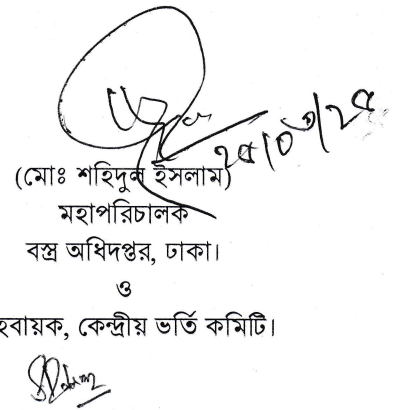 (মোঃ শহিদুল ইসলাম)
মহাপরিচালক
বস্ত্র অধিদপ্তর, ঢাকা।
ও
হবায়ক, কেন্দ্রীয় ভর্তি কমিটি।